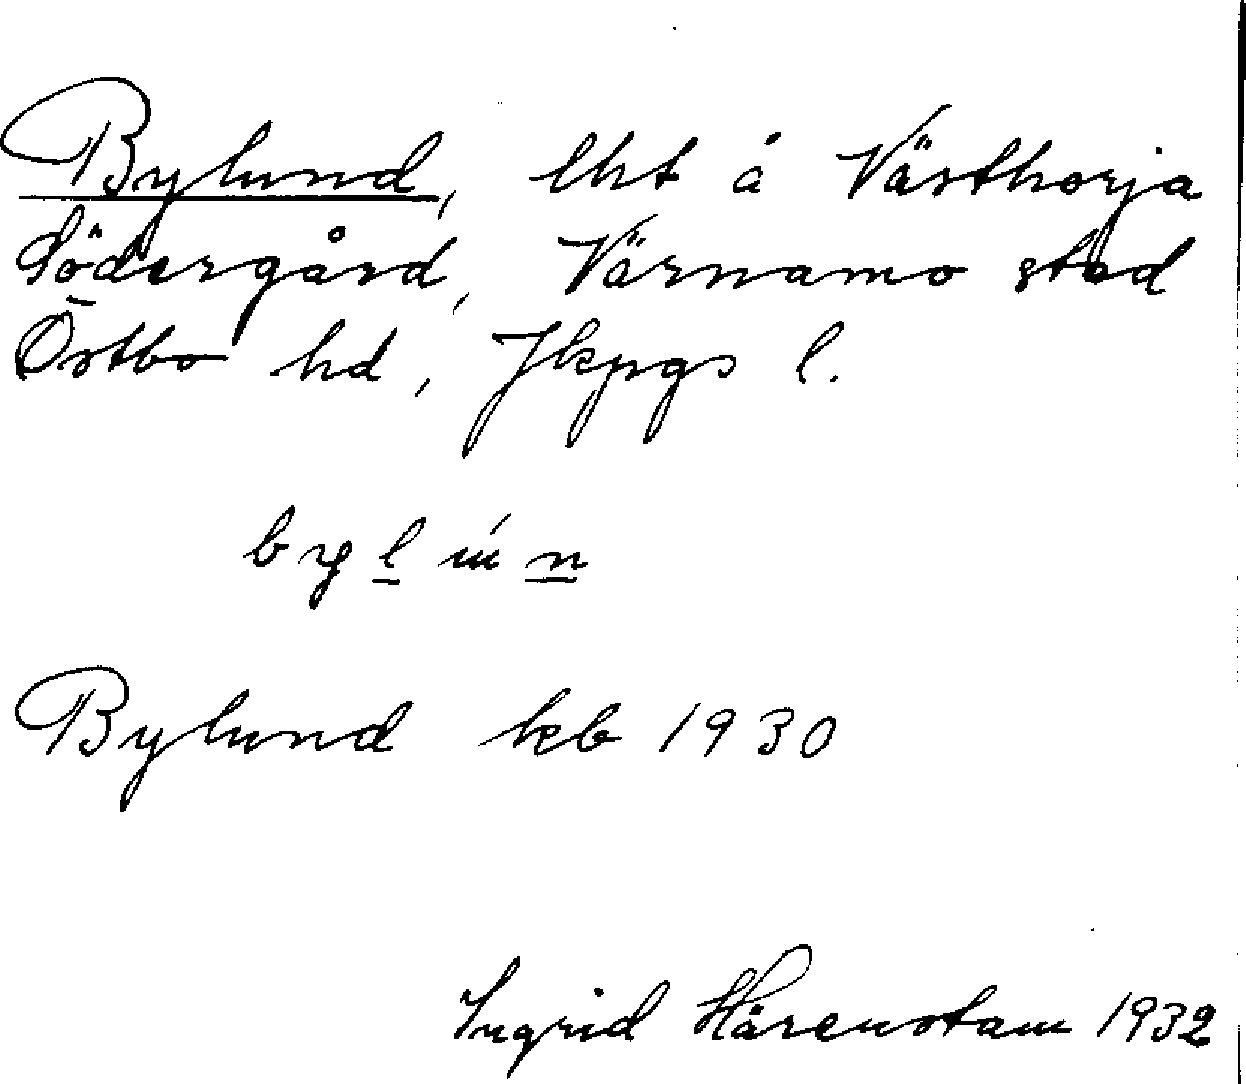 Bylund, lht å Västhorja
Södergård, Värnamo stad
Östbo hd, Jkpgs l.
by l ú n
Bylund kb 1930
Ingrid Härenstam 1932